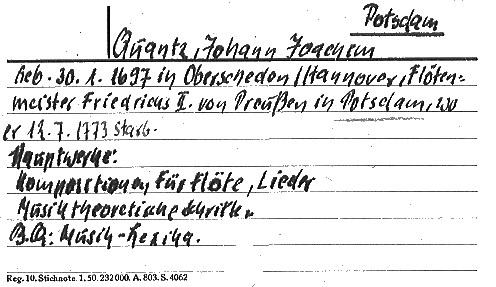 Potsdam
Quantz, Johann Joachem
Geb. 30. 1. 1697 in Oberscheden/Hannover, Flöten=
meister Friedrichs II. von Preußen in Potsdam, wo
er 12. 7. 1773 starb.
Hauptwerke:
Kompositionen für Flöte, Lieder
Musiktheoretische Schriften
B.Q: Musik-Lexika.
Reg. 10. Stichnote. 1. 50. 232000. A. 803. S. 4062